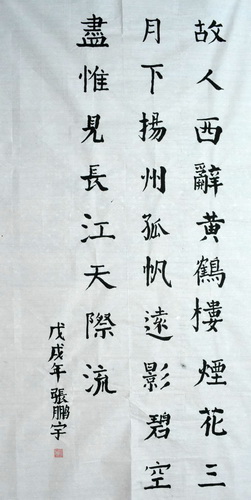 故人西辭黃鶴樓煙花三
月下揚州孤帆遠影碧空
盡惟見長江天際流
戊戌年張鵬宇